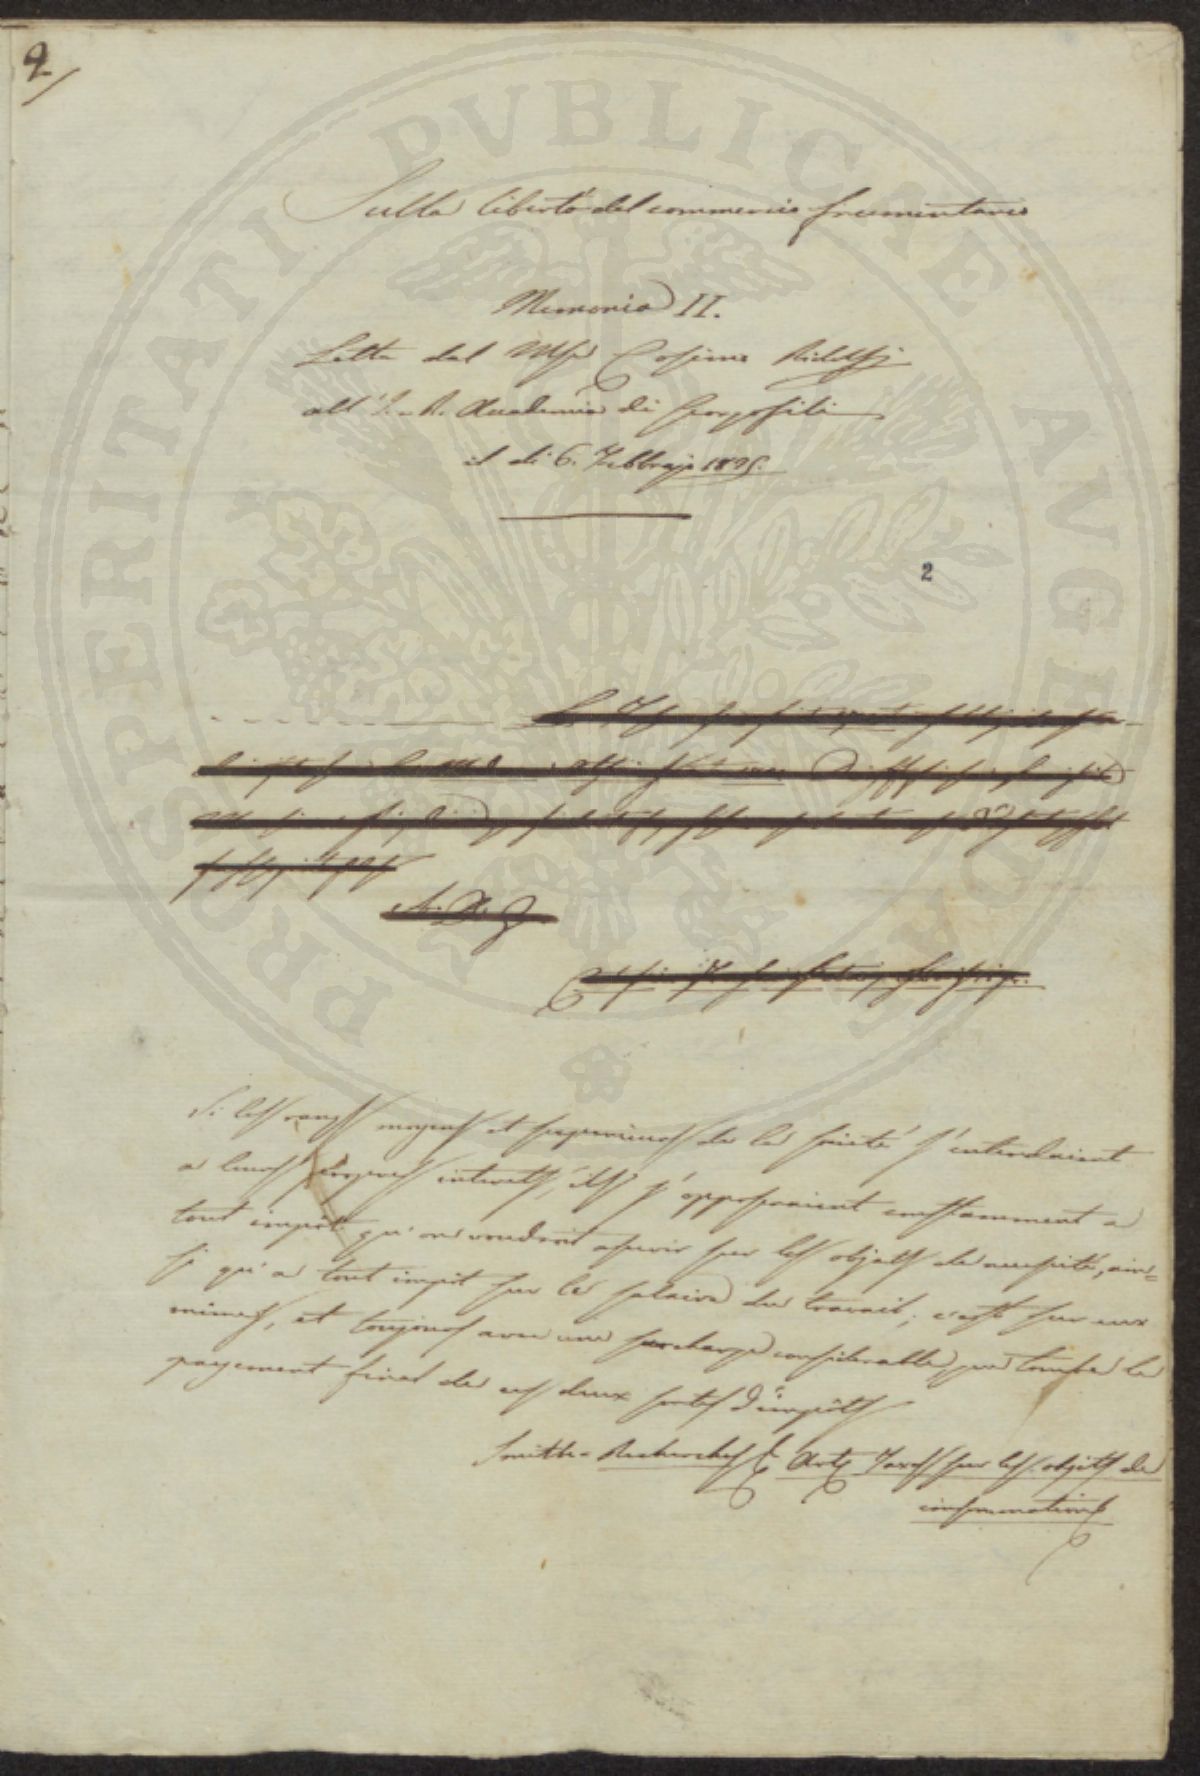 2/
PROSPERITATI PVBLICAE AVGENDAE
Sulla libertà del commercio frumentario
Memoria II.
Letta dal Mse Cosimo Ridolfi
all' I. e R. Accademia dei Georgofili
il dì 6. Febbrajo 1825.
2
Si les rangs moyens et superieurs de la société s'entendaient
a leurs propres interets, ils s'opposeraient constamment a
tout impôt qu'on voudroit asseoir sur les objets de necessité, ain=
si qu'a tout impôt sur le salaire du travail; c'est sur eux
mêmes, et toujours avec une surcharge considerable, que tombe le
payement final de ces deux sortes d'impôts
Smith - Recherches & Art. Taxes sur les objets de
consommation